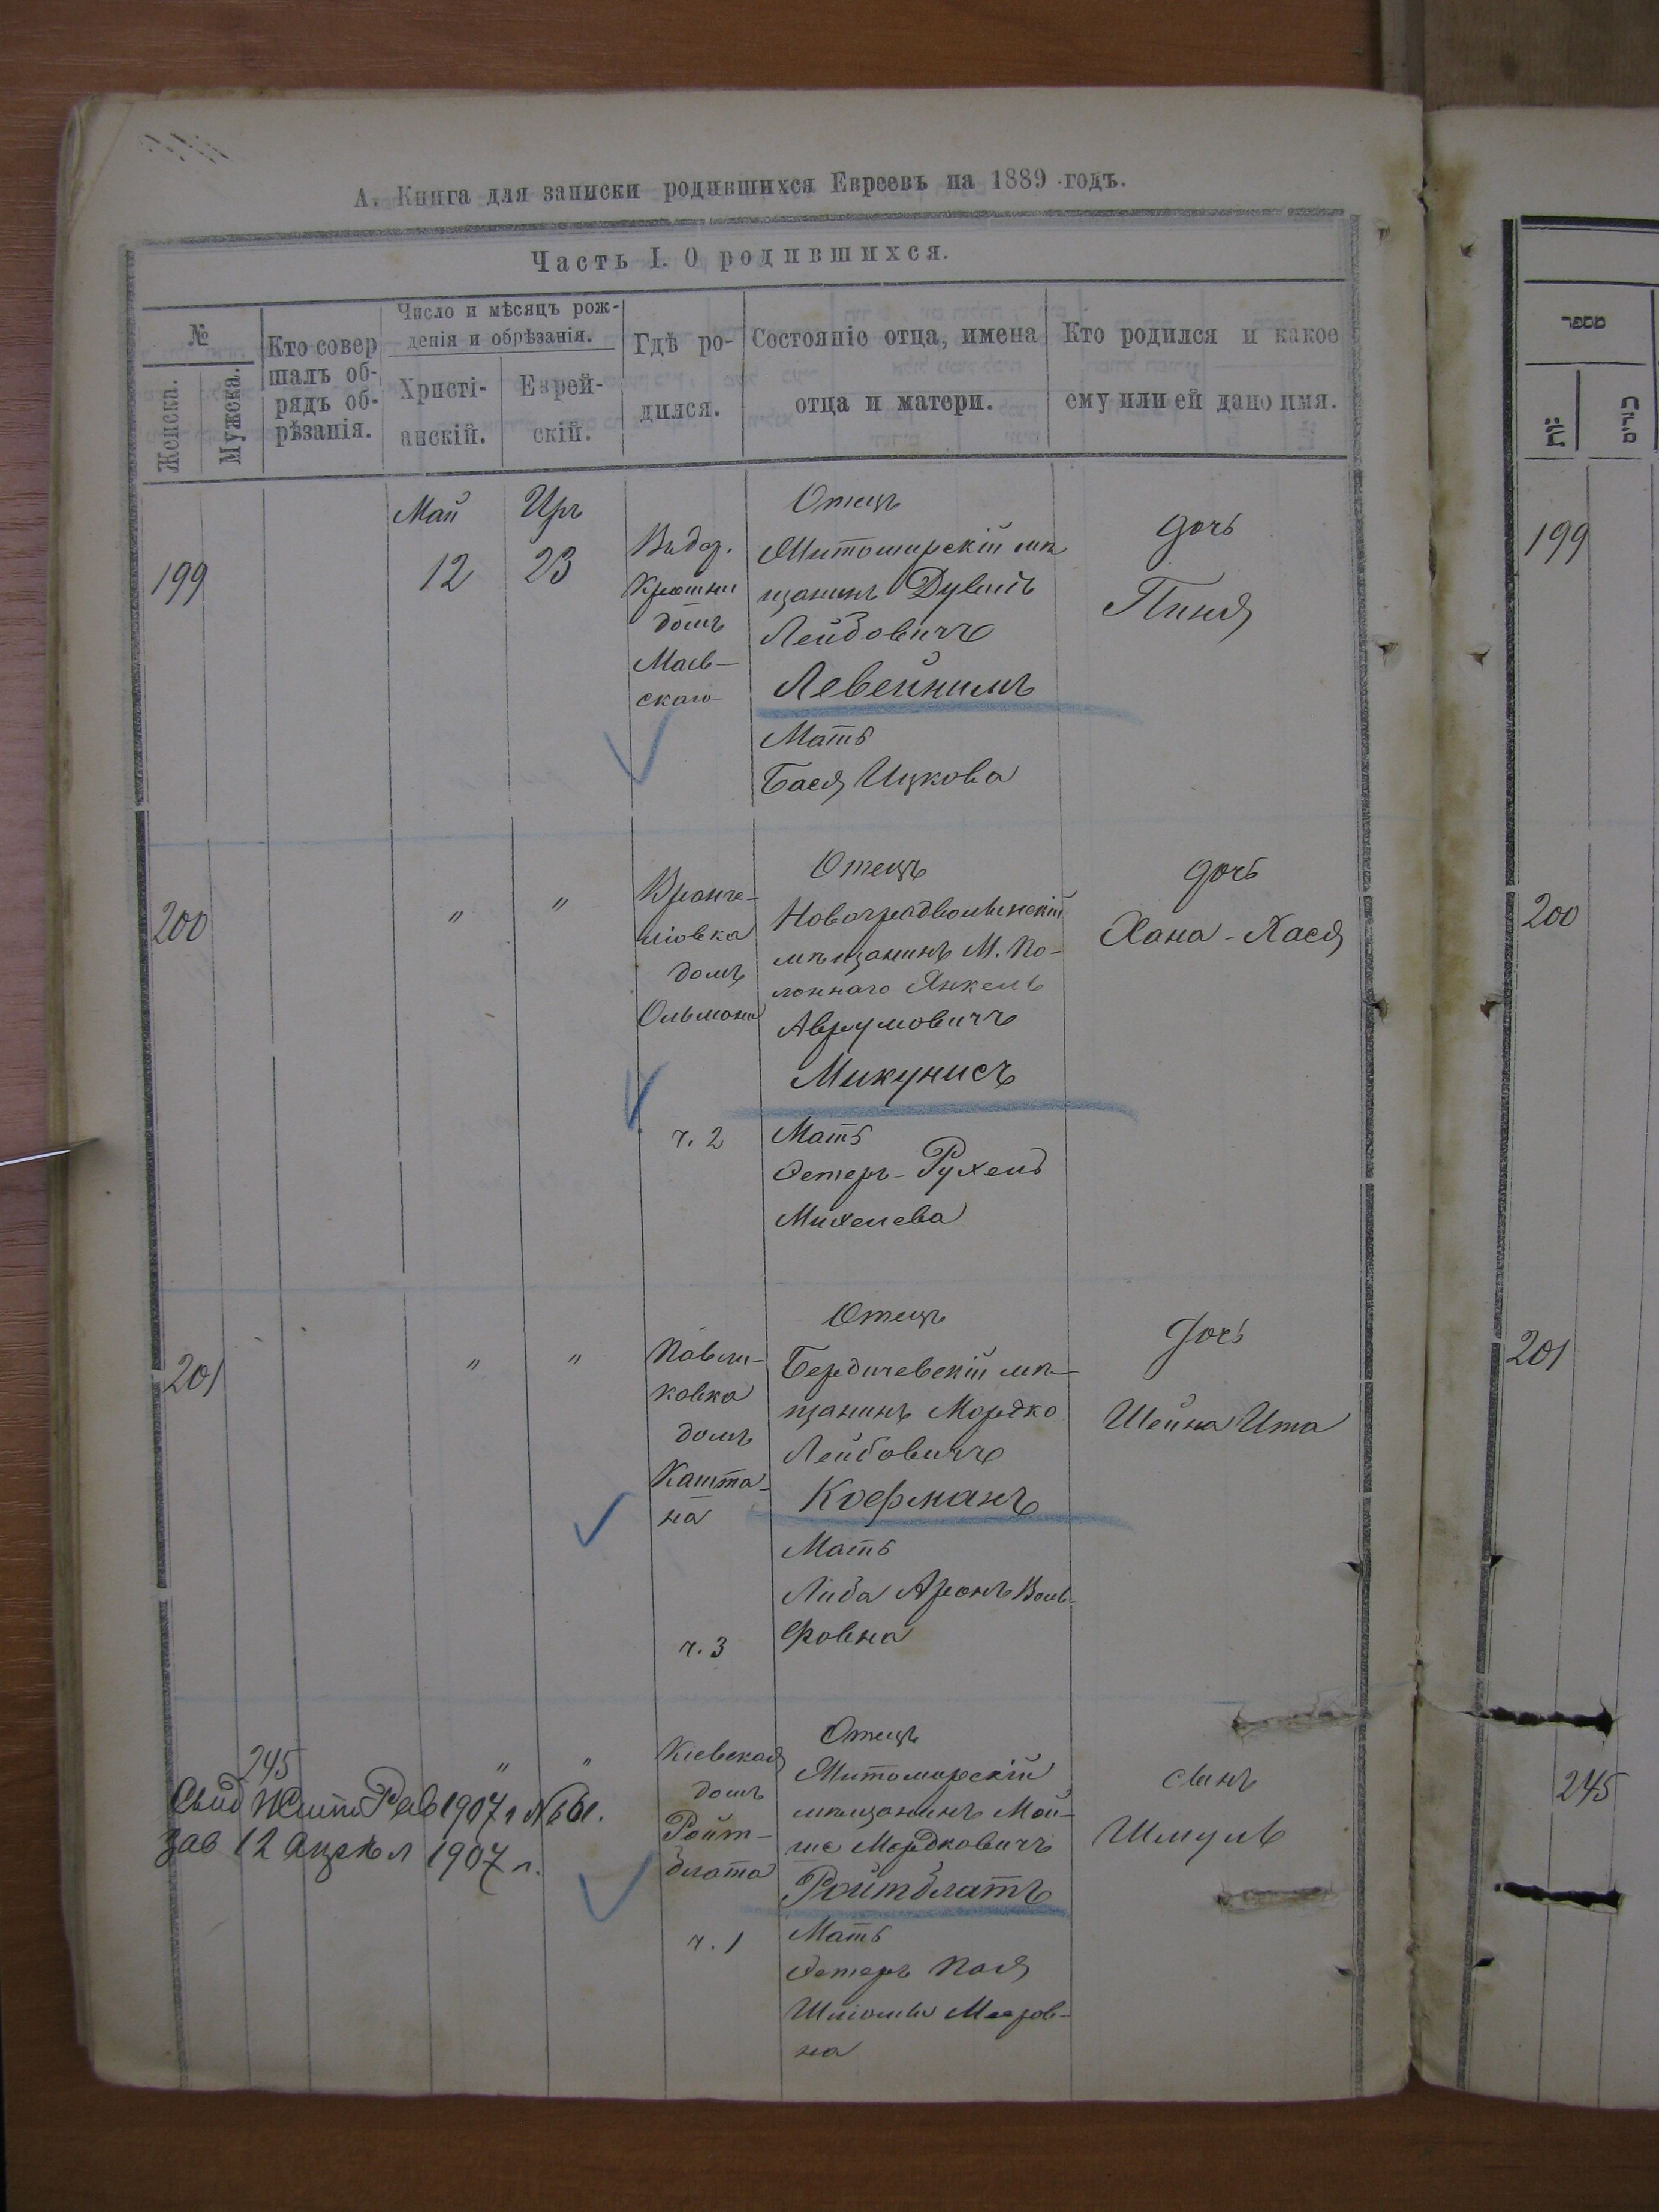 А. Книга для записки родившихся Евреевъ на 1889 годъ.
Часть I. О родившихся.
№
Женска.
Мужска.
Кто совер
шалъ об-
рядъ об-
рѣзанія.
Число и мѣсяцъ рож-
денія и обрѣзанія.
Христі-
анскій.
Еврей-
скій.
Гдѣ ро-
дился.
Состояніе отца, имена
отца и матери.
Кто родился и какое
ему или ей дано имя.
199
Май
12
Иръ
23
домъ
Маев-
скаго
Отецъ
Житомирскій мѣ
щанинъ
Лейбовичъ
Левейнимъ
Мать
Бася Ицкова
дочь
Пиня
200
"
"
Вранге-
лiовка
домъ
Ольмана
ч. 2
Отецъ
Новоградволынскій
мѣщанинъ М. По-
лоннаго Янкель
Аврумовичъ
Микунисъ
Мать
Эстеръ-Рухель
Михелева
дочь
Хана-Хася
201
"
"
Павли-
ковка
домъ
Кашта-
на
ч. 3
Отецъ
Бердичевскій мѣ-
щанинъ Мордко
Лейбовичъ
Кофманъ
Мать
Либа Аронъ Воль-
фовна
дочь
Шейна Ита
245
"
"
Свид Жит Рав 1907 г №
Зав 12 Апрѣл 1907 г.
Кіевская
домъ
Ройт-
блата
ч. 1
Отецъ
Житомирскій
мѣщанинъ Мой-
ше Мордковичъ
Ройтблатъ
Мать
Эстеръ Пая
Шліома Мееров-
на
сынъ
Шмуль
מספר
זכרים
199
200
201
245